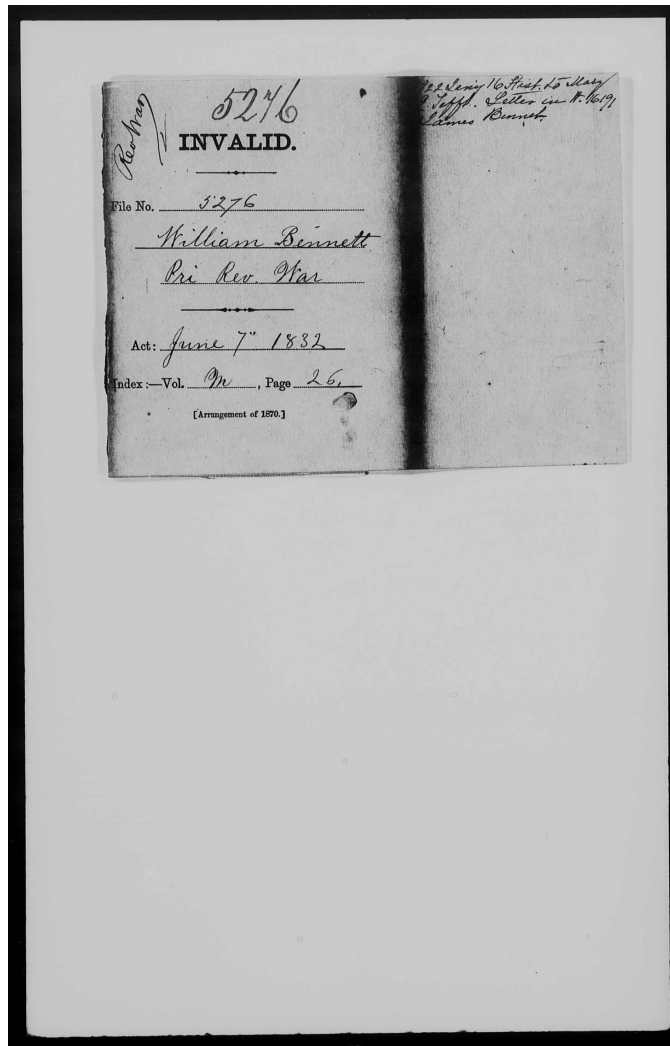 5276
Rev War
INVALID.
File No. 5276
William Bennett
Pri Rev. War
Act: June 7" 1832
Index:—Vol. M, Page 26.
[Arrangement of 1870.]
16 Hist. to Mary
Tefft. Letter in W. 16191
James Bennet.